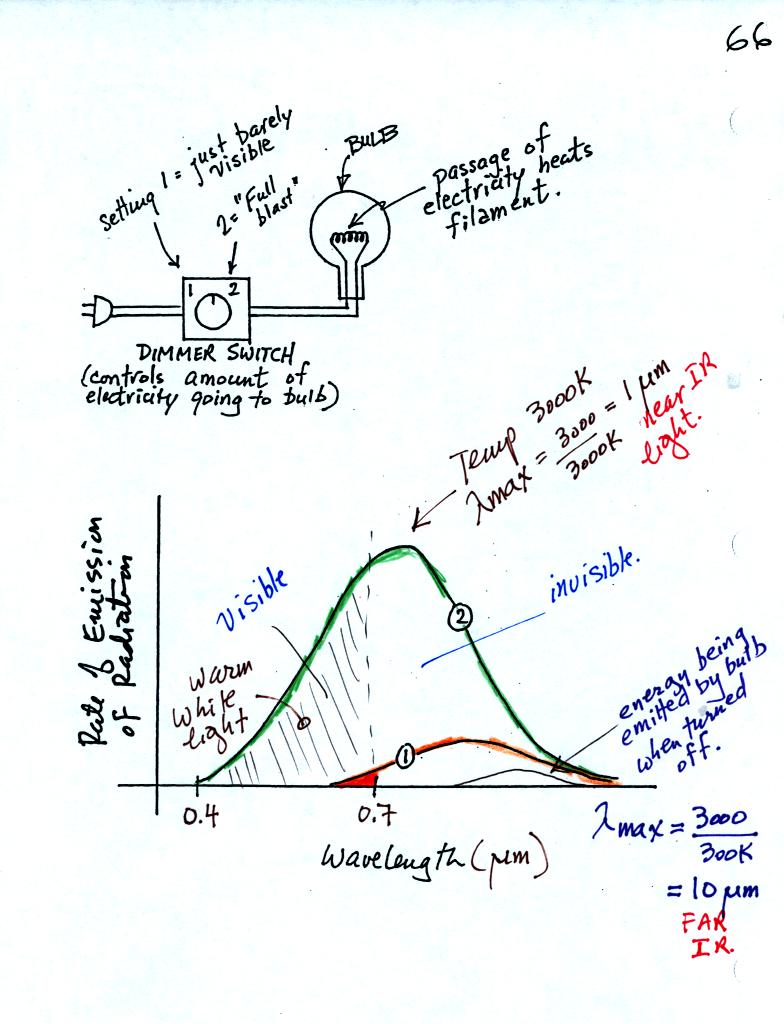 66
setting 1 = just barely
visible
2 = "Full
blast"
BULB
passage of
electricity heats
filament.
1 2
DIMMER SWITCH
(controls amount of
electricity going to bulb)
Temp 3000K
λmax = 3000 / 3000K = 1 μm
near IR
light.
Rate of Emission
of Radiation
visible
invisible.
warm
white
light
2
1
energy being
emitted by bulb
when turned
off.
0.4 0.7
Wavelength (μm)
λmax = 3000 / 300K
= 10 μm
FAR
IR.